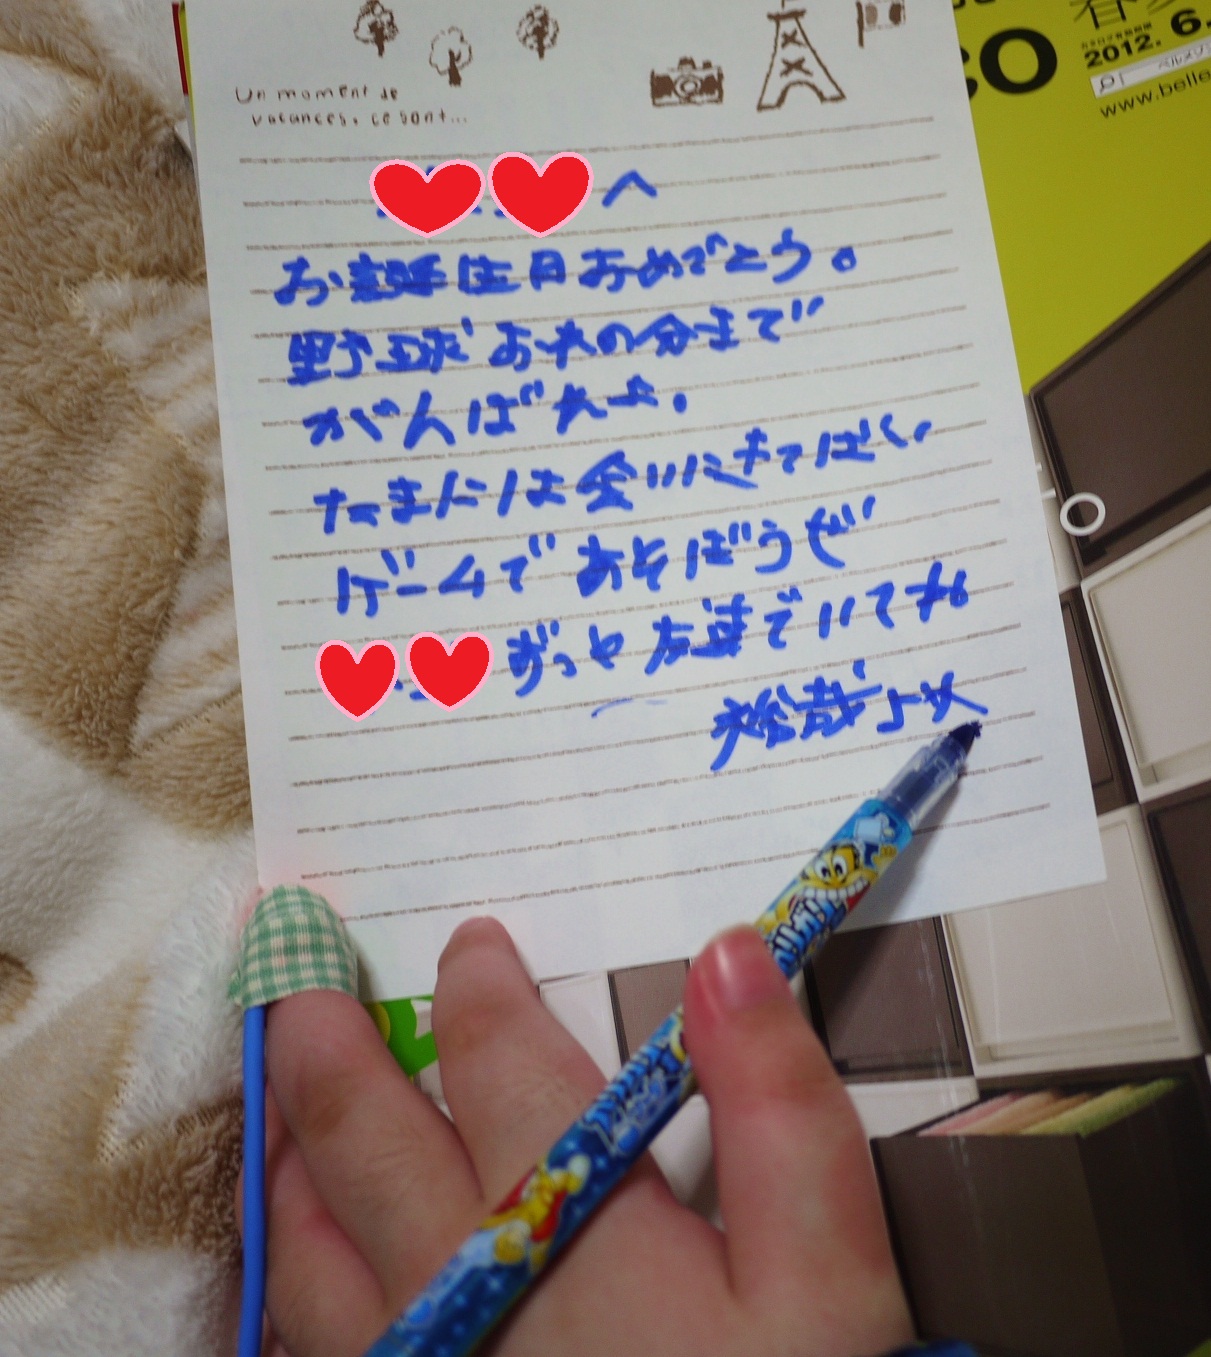 Un moment de
vacances, ce sont...
へ
お誕生日おめでとう。
野球おれの分まで
がんばれよ。
たまには会いにきてばく、
ゲームであそぼうぜ
ずっと友達でいてね
裕哉より
CO
2012. 6.
ベルメゾン
www.belle
ガリガリ